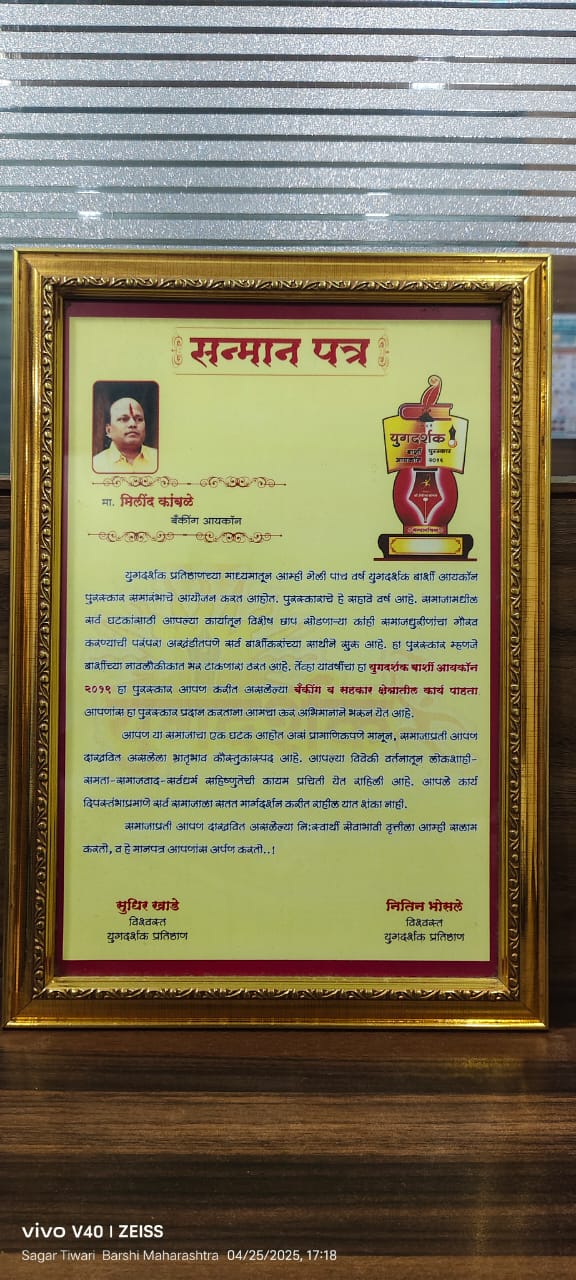 सन्मान पत्र
युगदर्शक
बार्शी पुरस्कार
आयकॉन २०१९
मा. मिलींद कांबळे
बँकींग आयकॉन
युगदर्शक प्रतिष्ठाणच्या माध्यमातून आम्ही गेली पाच वर्ष युगदर्शक बार्शी आयकॉन
पुरस्कार समारंभाचे आयोजन करत आहोत. पुरस्काराचे हे सहावे वर्ष आहे. समाजामधील
सर्व घटकांसाठी आपल्या कार्यातून विशेष छाप सोडणाऱ्या कांही समाजधुरीणांचा गौरव
करण्याची परंपरा अखंडीतपणे सर्व बार्शीकरांच्या साथीने सुरू आहे. हा पुरस्कार म्हणजे
बार्शीच्या नावलौकीकात भर टाकणारा ठरत आहे. तेंव्हा यावर्षीचा हा युगदर्शक बार्शी आयकॉन
२०१९ हा पुरस्कार आपण करीत असलेल्या बँकींग व सहकार क्षेत्रातील कार्य पाहता
आपणांस हा पुरस्कार प्रदान करताना आमचा ऊर अभिमानाने भरून येत आहे.
आपण या समाजाचा एक घटक आहोत असं प्रामाणिकपणे मानून, समाजाप्रती आपण
दाखवित असलेला भ्रातृभाव कौस्तुकास्पद आहे. आपल्या विवेकी वर्तनातून लोकशाही-
समता-समाजवाद-सर्वधर्म सहिष्णुतेची कायम प्रचिती येत राहिली आहे. आपले कार्य
दिपस्तंभाप्रमाणे सर्व समाजाला सतत मार्गदर्शन करीत राहील यात शंका नाही.
समाजाप्रती आपण दाखवित असलेल्या नि:स्वार्थी सेवाभावी वृत्तीला आम्ही सलाम
करतो, व हे मानपत्र आपणांस अर्पण करतो..!
सुधिर खाडे
विश्वस्त
युगदर्शक प्रतिष्ठाण
नितिन भोसले
विश्वस्त
युगदर्शक प्रतिष्ठाण
vivo V40 | ZEISS
Sagar Tiwari Barshi Maharashtra 04/25/2025, 17:18